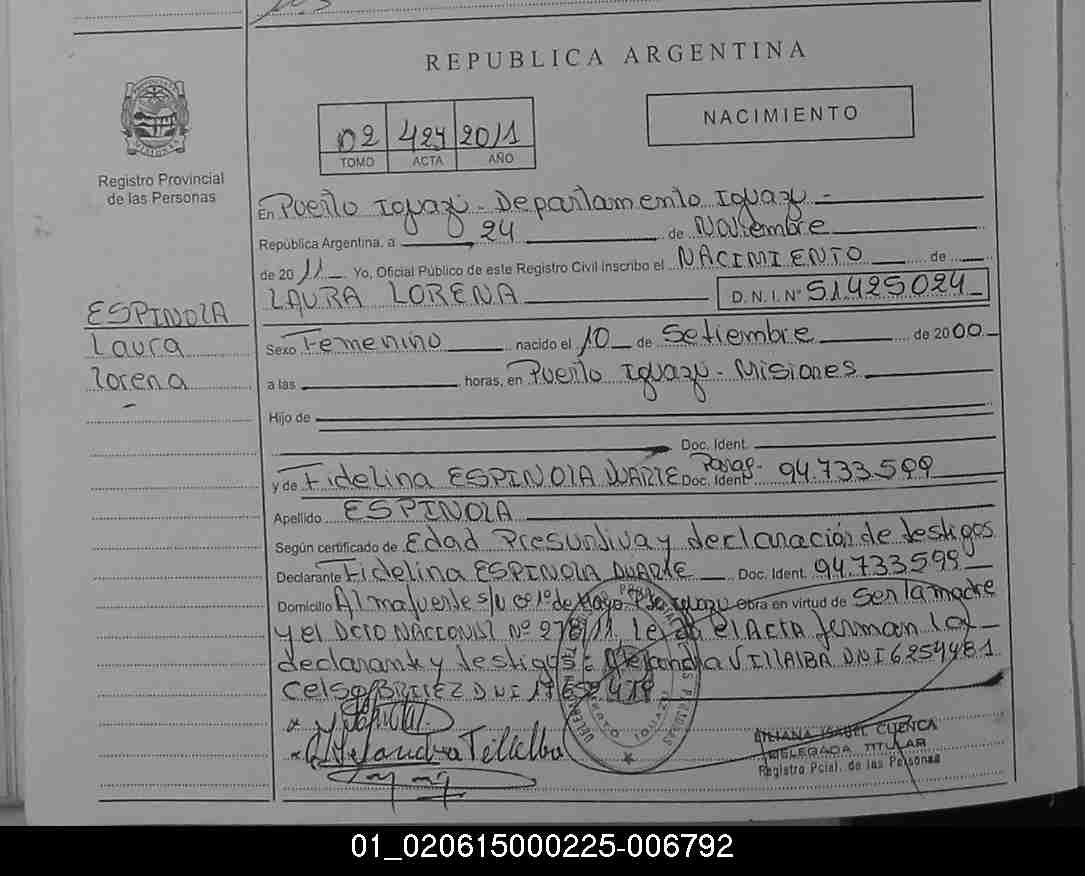 REPUBLICA ARGENTINA
02 424 2011
TOMO ACTA AÑO
NACIMIENTO
Registro Provincial
de las Personas
En Puerto Iguazu - Departamento Iguazu -
República Argentina, a 24 de Noviembre
de 2011 Yo, Oficial Público de este Registro Civil inscribo el NACIMIENTO de
LAURA LORENA D.N.I. Nº 51425024
ESPINOLA
Laura
Lorena
Sexo Femenino nacido el 10 de Setiembre de 2000
a las horas, en Puerto Iguazu - Misiones
Hijo de
Doc. Ident.
y de Fidelina ESPINOLA DUARTE Doc. Ident. Parag. 94.733.599
Apellido ESPINOLA
Según certificado de Edad Presuntiva y declaración de testigos
Declarante Fidelina ESPINOLA DUARTE Doc. Ident. 94.733599
Domicilio Almafuerte s/n 1º de Mayo Iguazu obra en virtud de Ser la madre
y el DCTO NACIONAL Nº 278/11, el ACTA firman la
declarante y testigos: Alejandra VILLALBA DNI 6254481
Celso BRITEZ DNI
LILIANA ISABEL CUENCA
DELEGADA TITULAR
Registro Pcial. de las Personas
01_020615000225-006792